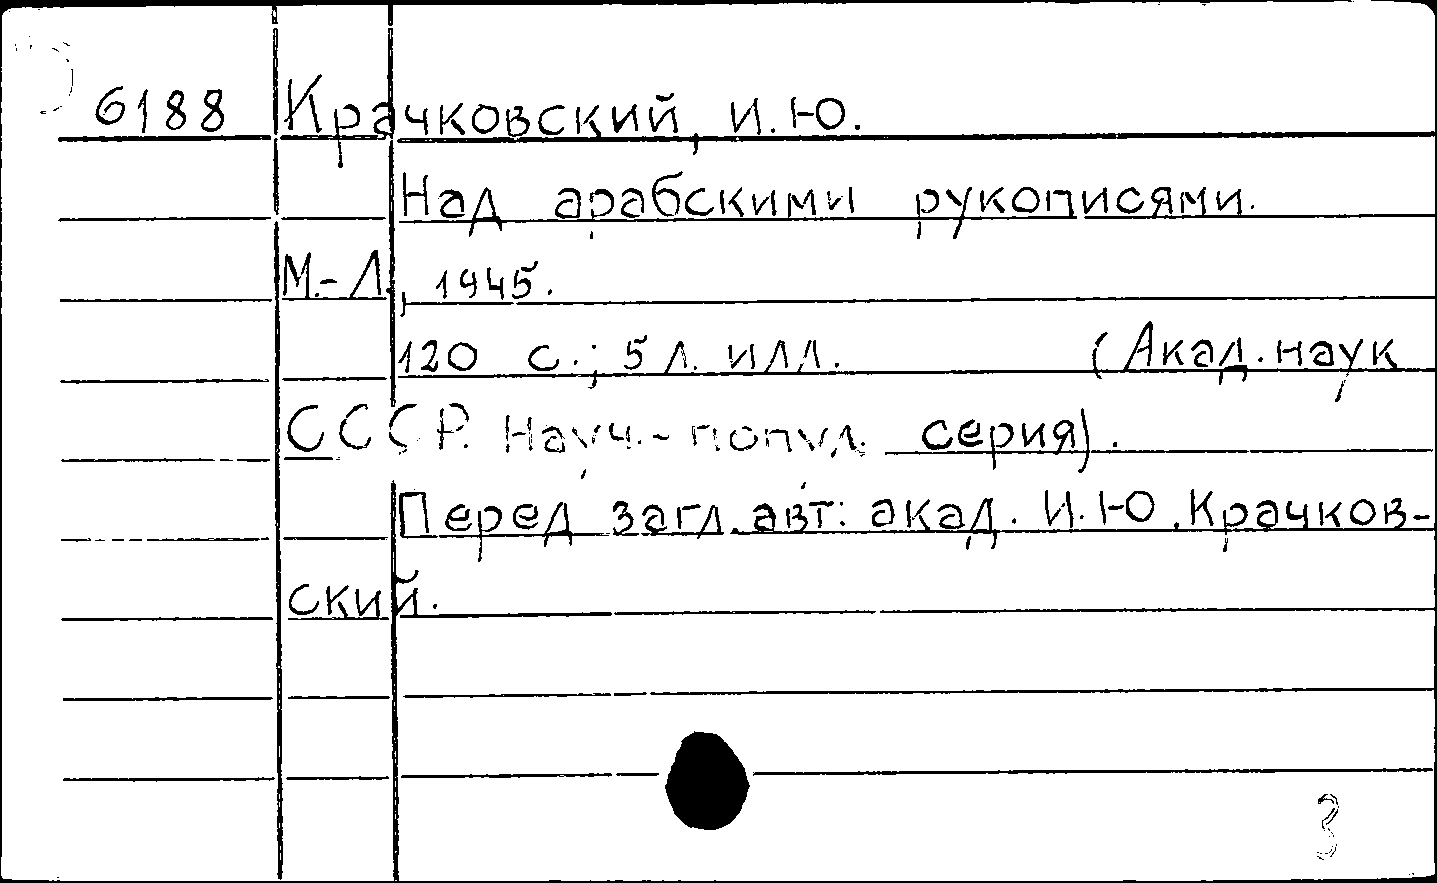 6188 Крачковский, И.Ю.
Над арабскими рукописями.
М.-Л., 1945.
120 с.; 5 л. илл. (Акад. наук
СССР. Науч.-попул. серия).
Перед загл. авт: акад. И.Ю. Крачков-
ский.
3